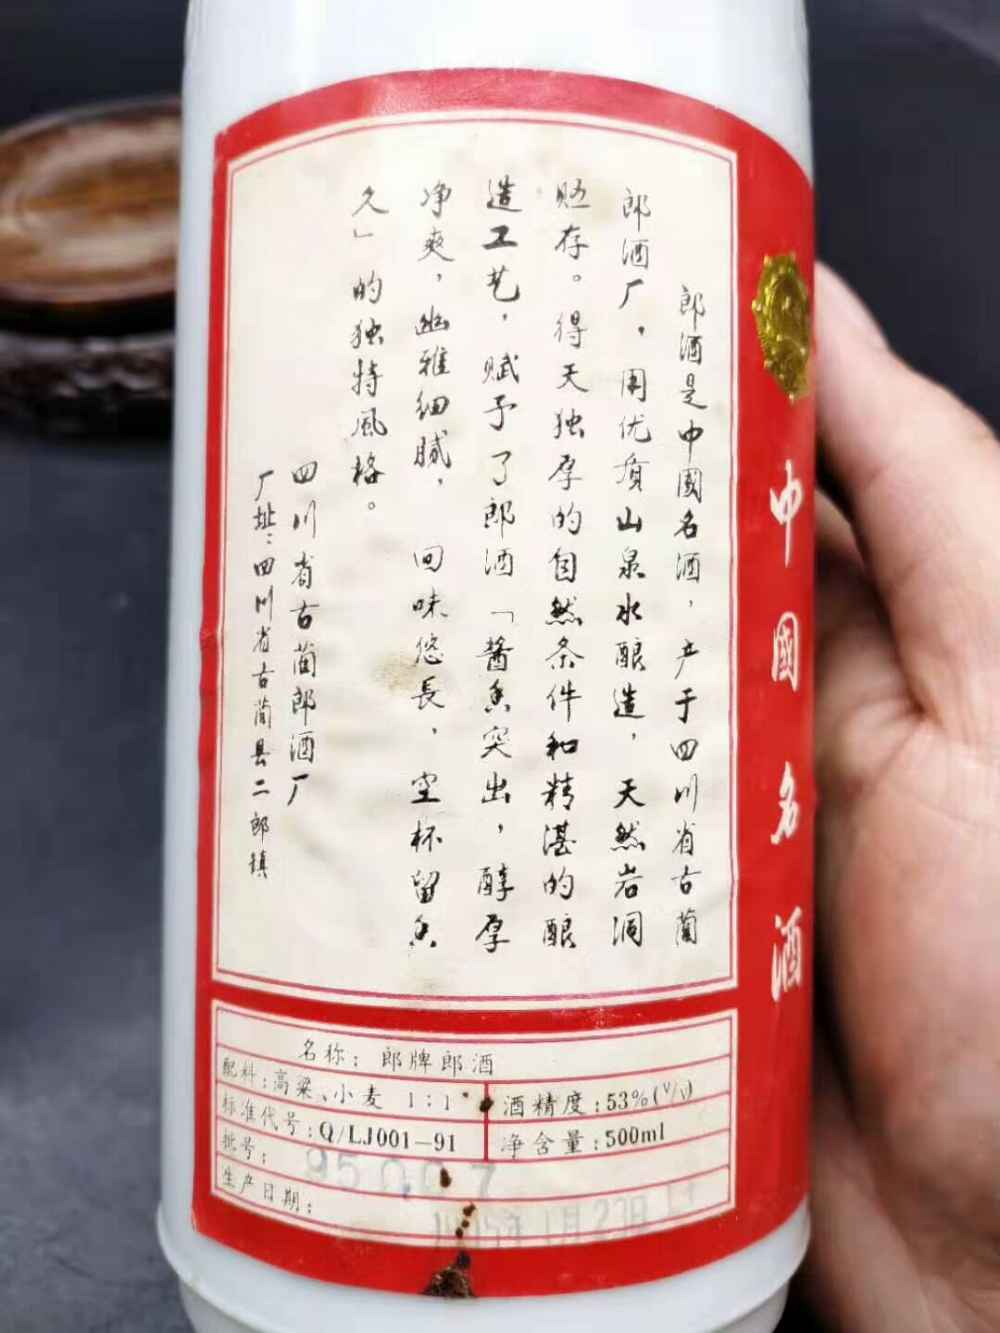 郎酒是中國名酒，产于四川省古蔺
郎酒厂，用优质山泉水酿造，天然岩洞
贮存。得天独厚的自然条件和精湛的酿
造工艺，赋予了郎酒「醬香突出，醇厚
净爽，幽雅细腻，回味悠長，空杯留香
久」的独特風格。
四川省古蔺郎酒厂
厂址：四川省古蔺县二郎镇
中國名酒
名称：郎牌郎酒
配料：高粱、小麦 1：1
酒精度：53%(V/V)
标准代号：Q/LJ001-91
净含量：500ml
批号：
生产日期：